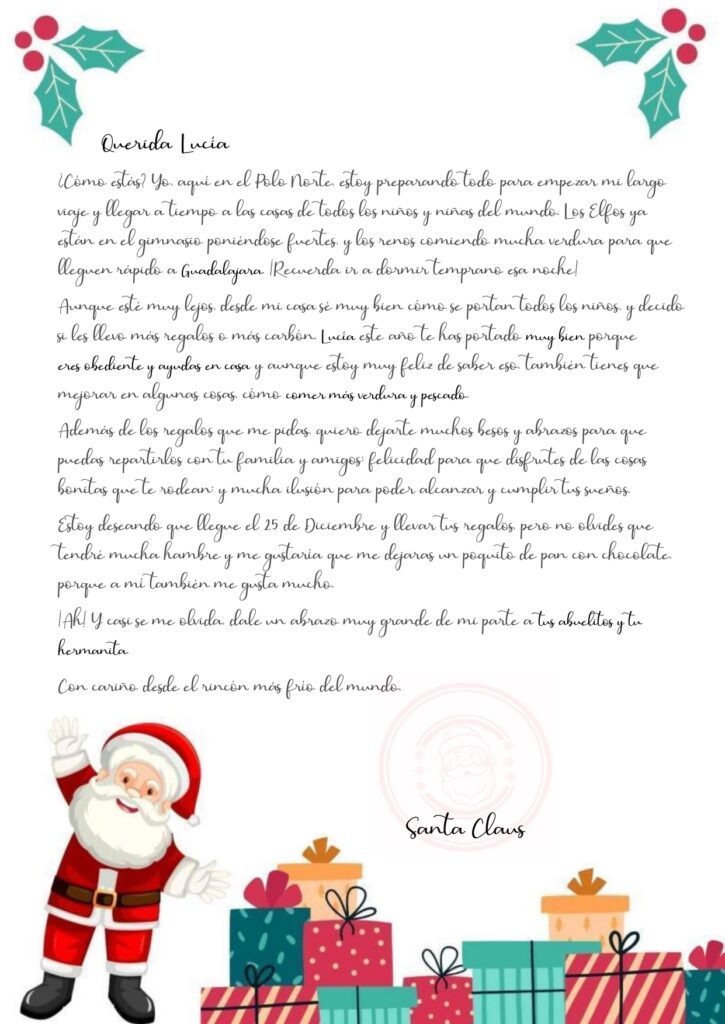 Querida Lucía
¿Cómo estás? Yo, aquí en el Polo Norte, estoy preparando todo para empezar mi largo
viaje y llegar a tiempo a las casas de todos los niños y niñas del mundo. Los Elfos ya
están en el gimnasio poniéndose fuertes, y los renos comiendo mucha verdura para que
lleguen rápido a Guadalajara. ¡Recuerda ir a dormir temprano esa noche!
Aunque esté muy lejos, desde mi casa sé muy bien cómo se portan todos los niños, y decido
si les llevo más regalos o más carbón. Lucía este año te has portado muy bien porque
eres obediente y ayudas en casa y aunque estoy muy feliz de saber eso, también tienes que
mejorar en algunas cosas, cómo comer más verdura y pescado.
Además de los regalos que me pidas, quiero dejarte muchos besos y abrazos para que
puedas repartirlos con tu familia y amigos; felicidad para que disfrutes de las cosas
bonitas que te rodean; y mucha ilusión para poder alcanzar y cumplir tus sueños.
Estoy deseando que llegue el 25 de Diciembre y llevar tus regalos, pero no olvides que
tendré mucha hambre y me gustaría que me dejaras un poquito de pan con chocolate,
porque a mí también me gusta mucho.
¡Ah! Y casi se me olvida, dale un abrazo muy grande de mi parte a tus abuelitos y tu
hermanita.
Con cariño desde el rincón más frío del mundo,
Santa Claus